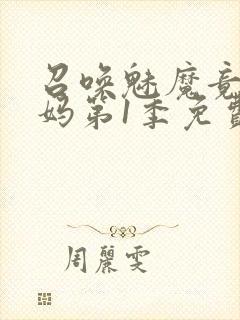 召唤魅魔竟
妈第1季免费
周麗雯